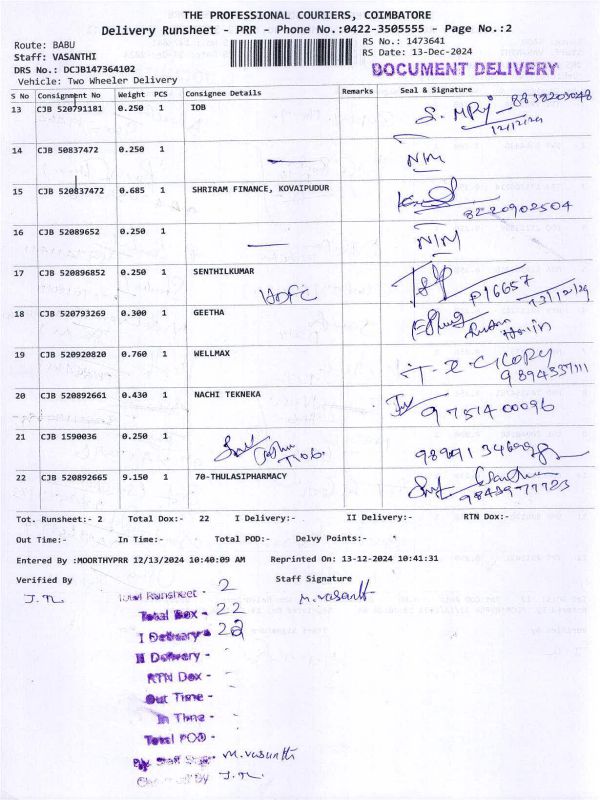 THE PROFESSIONAL COURIERS, COIMBATORE
Delivery Runsheet - PRR - Phone No.:0422-3505555 - Page No.:2
Route: BABU
RS No.: 1473641
Staff: VASANTHI
RS Date: 13-Dec-2024
DRS No.: DCJB147364102
DOCUMENT DELIVERY
Vehicle: Two Wheeler Delivery
S No Consignment No Weight PCS Consignee Details Remarks Seal & Signature
13 CJB 520791181 0.250 1 IOB
14 CJB 50837472 0.250 1 N/M
15 CJB 520837472 0.685 1 SHRIRAM FINANCE, KOVAIPUDUR
8220902504
16 CJB 52089652 0.250 1 N/M
17 CJB 520896852 0.250 1 SENTHILKUMAR
HDFC P16657
18 CJB 520793269 0.300 1 GEETHA
19 CJB 520920820 0.760 1 WELLMAX
20 CJB 520892661 0.430 1 NACHI TEKNEKA 9751400096
21 CJB 1590036 0.250 1
22 CJB 520892665 9.150 1 70-THULASIPHARMACY
Tot. Runsheet:- 2 Total Dox:- 22 I Delivery:- II Delivery:- RTN Dox:-
Out Time:- In Time:- Total POD:- Delvy Points:-
Entered By :MOORTHYPRR 12/13/2024 10:40:09 AM Reprinted On: 13-12-2024 10:41:31
Verified By Staff Signature
J.R. M.Vasanthi
Total Runsheet - 2
Total Dox - 22
I Delivery - 22
II Delivery -
RTN Dox -
Out Time -
In Time -
Total POD -
M.Vasanthi
J.R.